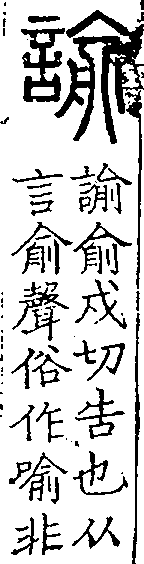 諭
諭俞戍切告也从
言俞聲俗作喻非